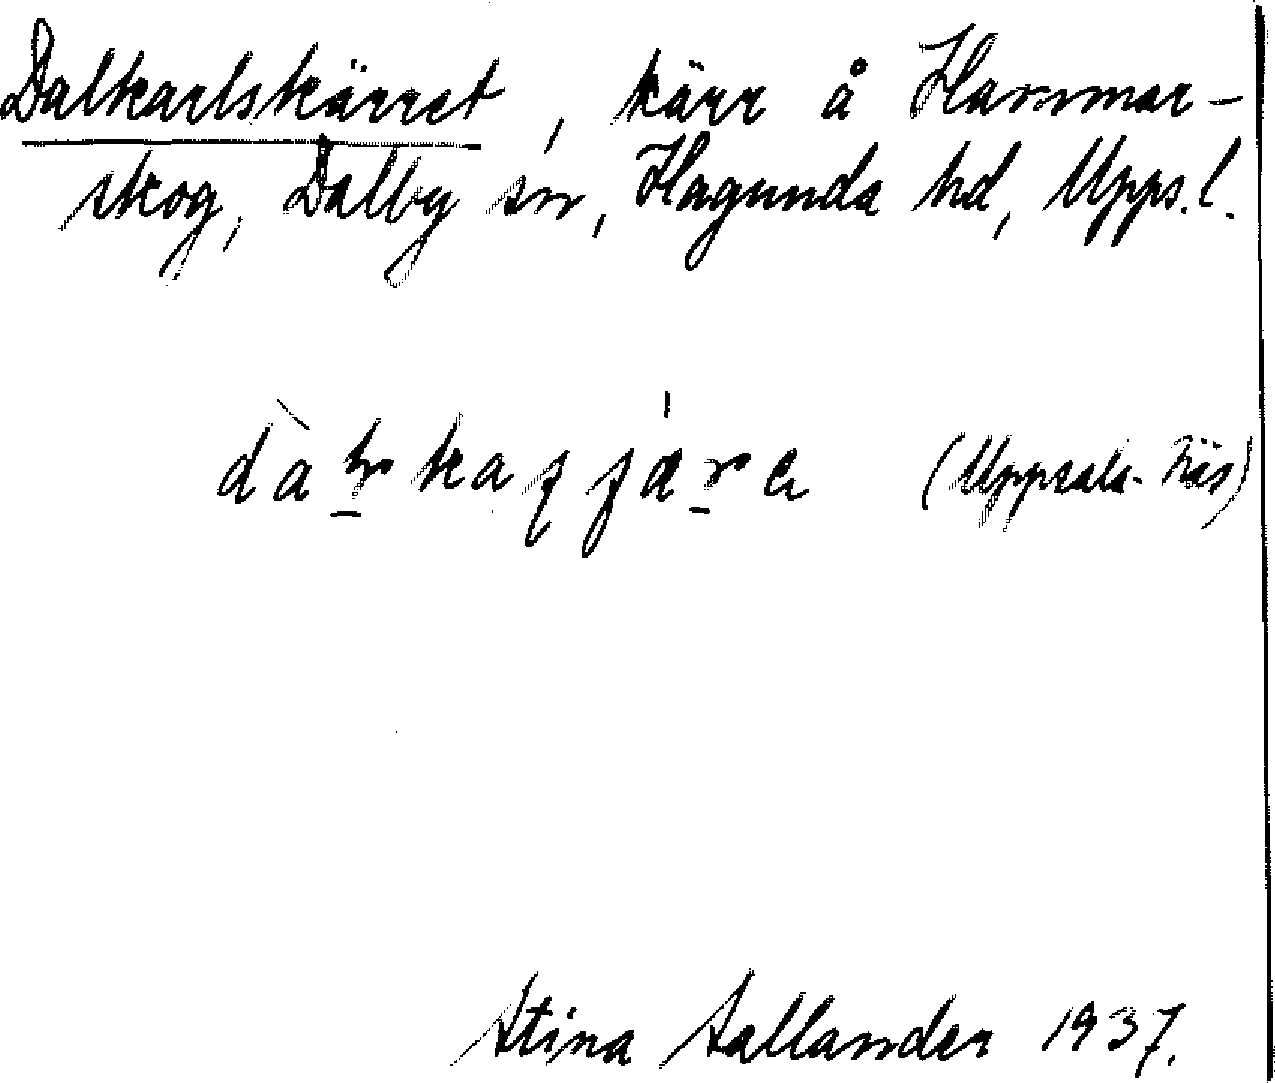 Dalkarlskärret, kärr å Hammar-
skog, Dalby sn, Hagunda hd, Upps.l.
(Uppsala-Näs)
Stina Sallander 1937.